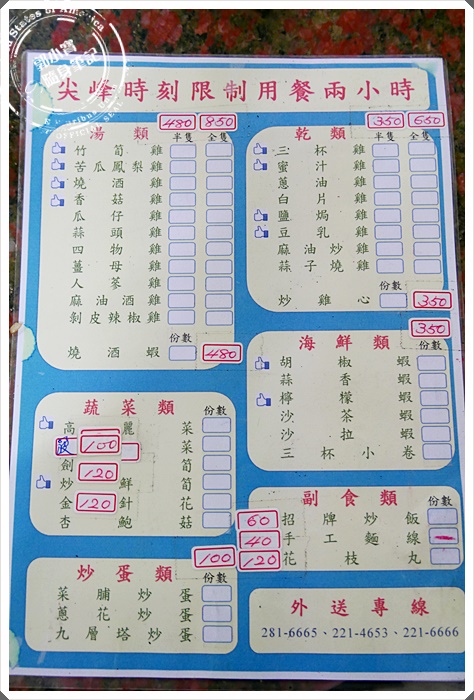 States of America
隨身筆記
尖峰時刻限制用餐兩小時
湯類 480 850
半隻 全隻
竹筍雞
苦瓜鳳梨雞
燒酒雞
香菇雞
瓜仔雞
蒜頭雞
四物雞
薑母雞
人蔘雞
麻油酒雞
剝皮辣椒雞
份數
燒酒蝦 480
乾類 350 650
半隻 全隻
三杯雞
蜜汁雞
蔥油雞
白片雞
鹽焗雞
豆乳雞
麻油炒雞
蒜子燒雞
份數
炒雞心 350
350
海鮮類 份數
胡椒蝦
蒜香蝦
檸檬蝦
沙茶蝦
沙拉蝦
三杯小卷
蔬菜類 份數
高麗菜
100 菜
劍 120 筍
炒鮮筍
金 120 針花
杏鮑菇
副食類 份數
60 招牌炒飯
40 手工麵線
120 花枝丸
100
炒蛋類 份數
菜脯炒蛋
蔥花炒蛋
九層塔炒蛋
外送專線
281-6665、221-4653、221-6666